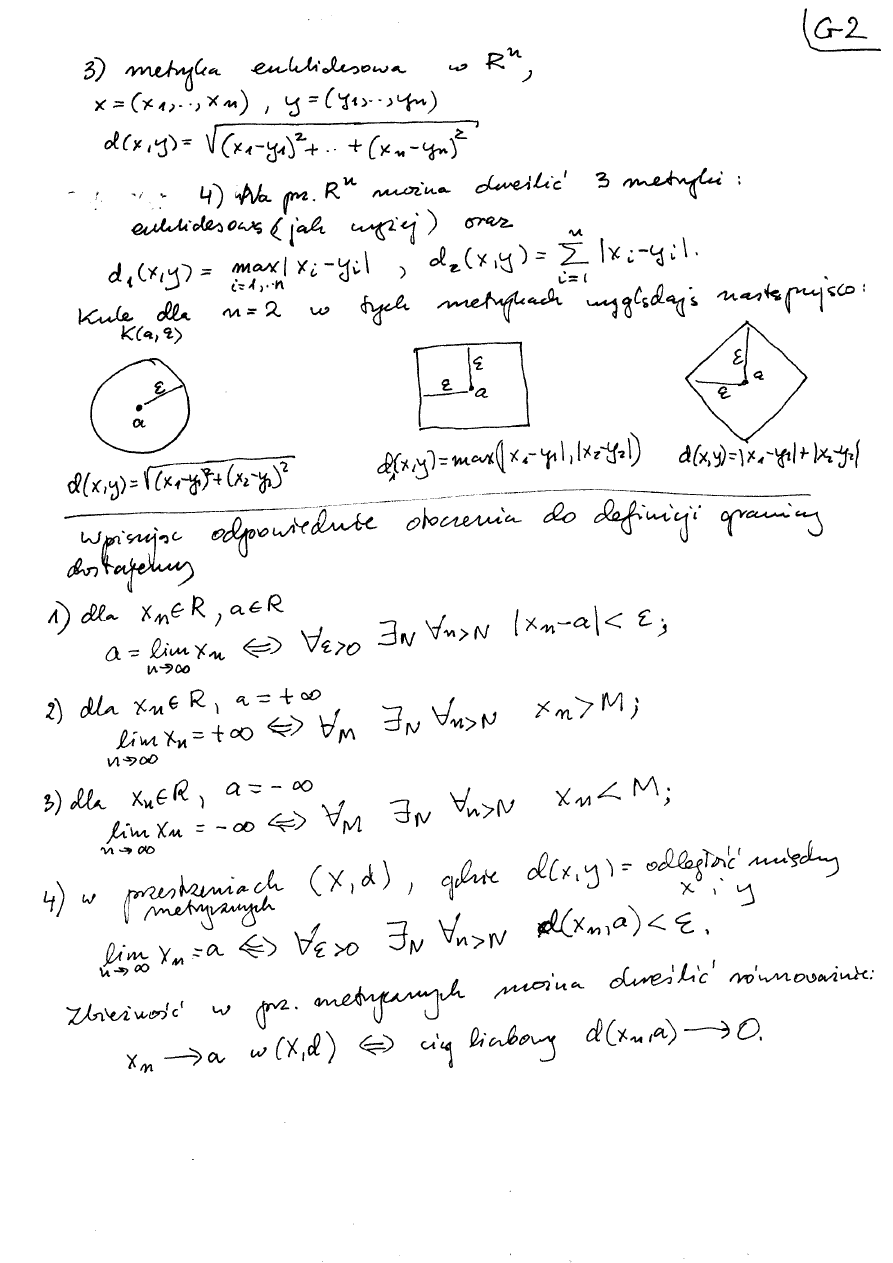 G-2
3) metryka euklidesowa w Rⁿ,
x=(x₁,..,xₙ), y=(y₁,..,yₙ)
d(x,y)=√((x₁-y₁)²+..+(xₙ-yₙ)²)
4) Na prz. Rⁿ można określić 3 metryki:
euklidesową (jak wyżej) oraz
d₁(x,y) = max|xᵢ-yᵢ|, d₂(x,y) = Σ |xᵢ-yᵢ|.
i=1,..n n i=1
Kule dla n=2 w tych metrykach wyglądają następująco:
K(a,ε)
ε a
ε ε a
ε ε a
d(x,y)=√((x₁-y₁)²+(x₂-y₂)²)
d₁(x,y)=max(|x₁-y₁|,|x₂-y₂|)
d(x,y)=|x₁-y₁|+|x₂-y₂|
Wpisując odpowiednie otoczenia do definicji granicy
dostajemy
1) dla xₙ∈R, a∈R
a = lim xₙ ⇔ ∀ε>0 ∃N ∀n>N |xₙ-a|< ε;
n→∞
2) dla xₙ∈R, a=+∞
lim xₙ=+∞ ⇔ ∀M ∃N ∀n>N xₙ>M;
n→∞
3) dla xₙ∈R, a=-∞
lim xₙ = -∞ ⇔ ∀M ∃N ∀n>N xₙ<M;
n→∞
4) w przestrzeniach (X,d), gdzie d(x,y)= odległość między
metrycznych x i y
lim xₙ=a ⇔ ∀ε>0 ∃N ∀n>N d(xₙ,a)<ε.
n→∞
Zbieżność w prz. metrycznych można określić równoważnie:
xₙ → a w (X,d) ⇔ ciąg liczbowy d(xₙ,a) → 0.